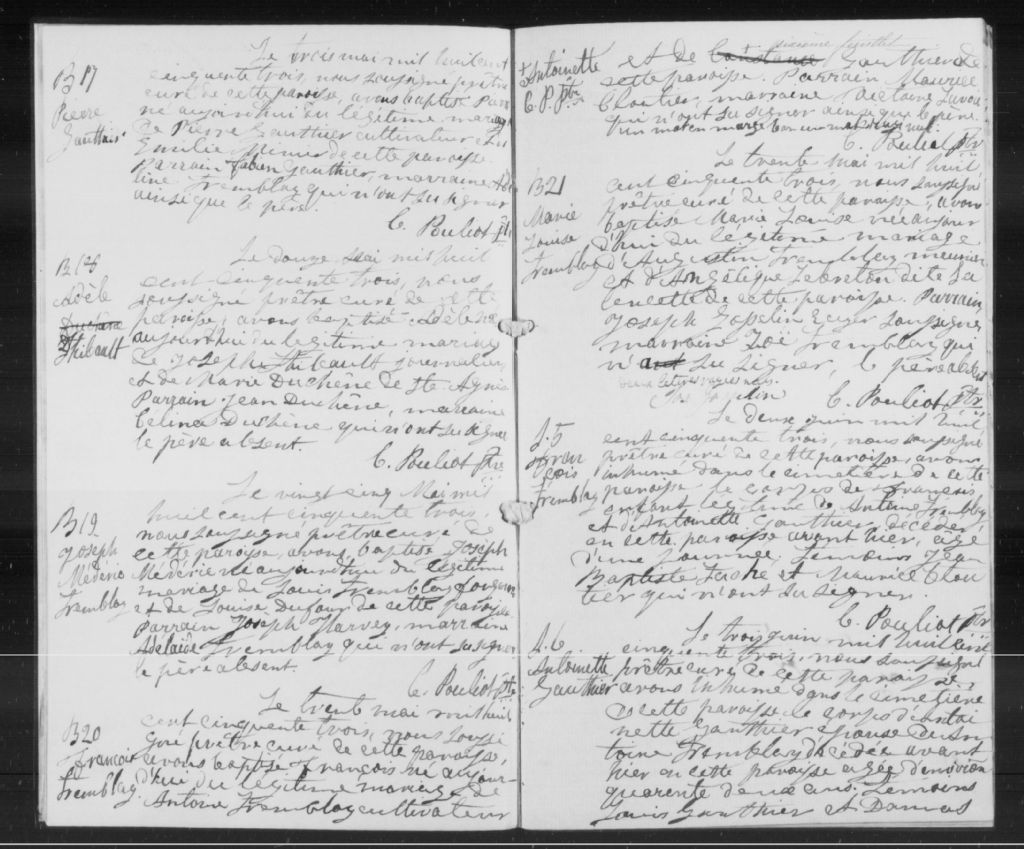 B 17
Pierre
Gauthier
Le trois mai mil huit cent
cinquante trois, nous soussigné prêtre
curé de cette paroisse, avons baptisé Pierre
né aujourd'hui du légitime mariage
de Pierre Gauthier cultivateur &
Emilie de cette paroisse.
Parrain Fabien Gauthier, marraine Ade
line Tremblay qui n'ont su signer
ainsi que le père.
C. Pouliot Ptre
B 18
Adèle
Duchêne
Thibault
Le douze Mai mil huit
cent cinquante trois, nous
soussigné prêtre curé de cette
paroisse, avons baptisé Adèle née
aujourd'hui du légitime mariage
de Joseph Thibault journalier
et de Marie Duchêne de Ste Agnès
Parrain Jean Duchêne, marraine
Célina Duchêne qui n'ont su signer
le père absent.
C. Pouliot Ptre
B 19
Joseph
Médéric
Tremblay
Le vingt cinq Mai mil
huit cent cinquante trois,
nous soussigné prêtre curé de
cette paroisse, avons baptisé Joseph
Médéric né aujourd'hui du légitime
mariage de Louis Tremblay
et de Louise Dufour de cette paroisse
Parrain Joseph Harvey, marraine
Adélaïde Tremblay qui n'ont su signer
le père absent.
C. Pouliot Ptre
B 20
François
Tremblay
Le trente mai mil huit
cent cinquante trois, nous sousi
gné prêtre curé de cette paroisse,
avons baptisé François né aujour-
d'hui du légitime mariage de
Antoine Tremblay cultivateur
+ Antoinette
C. P. Ptre
et de Constance Gauthier de
cette paroisse. Parrain Maurice
Cloutier, marraine Lavoie
qui n'ont su signer ainsi que le père.
Un mot en marge bon un mot nul.
C. Pouliot Ptre
B 21
Marie
Louise
Tremblay
Le trente Mai mil huit
cent cinquante trois, nous soussigné
prêtre curé de cette paroisse, avons
baptisé Marie Louise née aujour
d'hui du légitime mariage
d'Augustin Tremblay meunier
et d'Angélique Lebreton dite La
lencette de cette paroisse. Parrain
Joseph Gopelin soussigné
marraine Zoé Tremblay qui
n'ont su signer, le père absent
C. Pouliot Ptre
S. 5
Fran
çois
Tremblay
Le deux juin mil huit
cent cinquante trois, nous soussigné
prêtre curé de cette paroisse, avons
inhumé dans le cimetière de cette
paroisse le corps de François
enfant légitime de Antoine Tremblay
et d'Antoinette Gauthier décédé
en cette paroisse avant hier, agé
d'une journée. Témoins Jean
Baptiste et Maurice Clou
tier qui n'ont su signer.
C. Pouliot Ptre
S. 6
Antoinette
Gauthier
Le trois juin mil huit cent
cinquante trois, nous soussigné
prêtre curé de cette paroisse,
avons inhumé dans le cimetière
de cette paroisse le corps d'Antoi
nette Gauthier épouse de An
toine Tremblay décédée avant
hier en cette paroisse agée d'environ
quarente deux ans. Témoins
Louis Gauthier et Damas